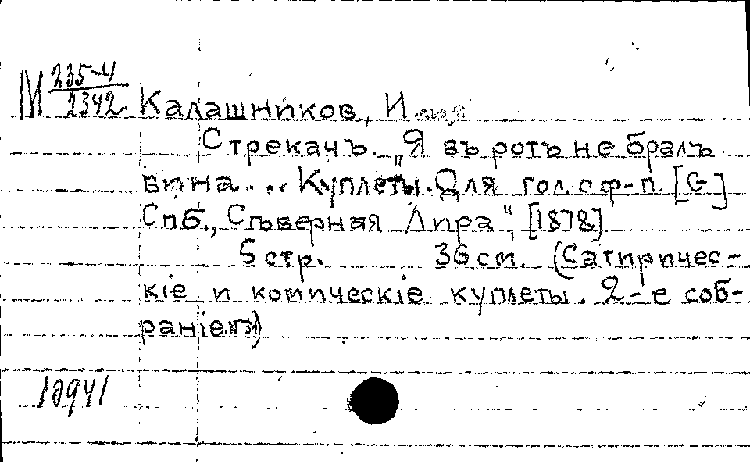 М 235-4
2342 Калашников, И
Стрекачъ. „Я въ ротъ не бралъ
вина... Куплеты. Для гол. с ф-п. [G-]
Спб., „Съверная Лира", [1878]
5 стр. 36 см. (Сатиричес-
кіе и комическіе куплеты. 2-е соб-
раніе)
10941